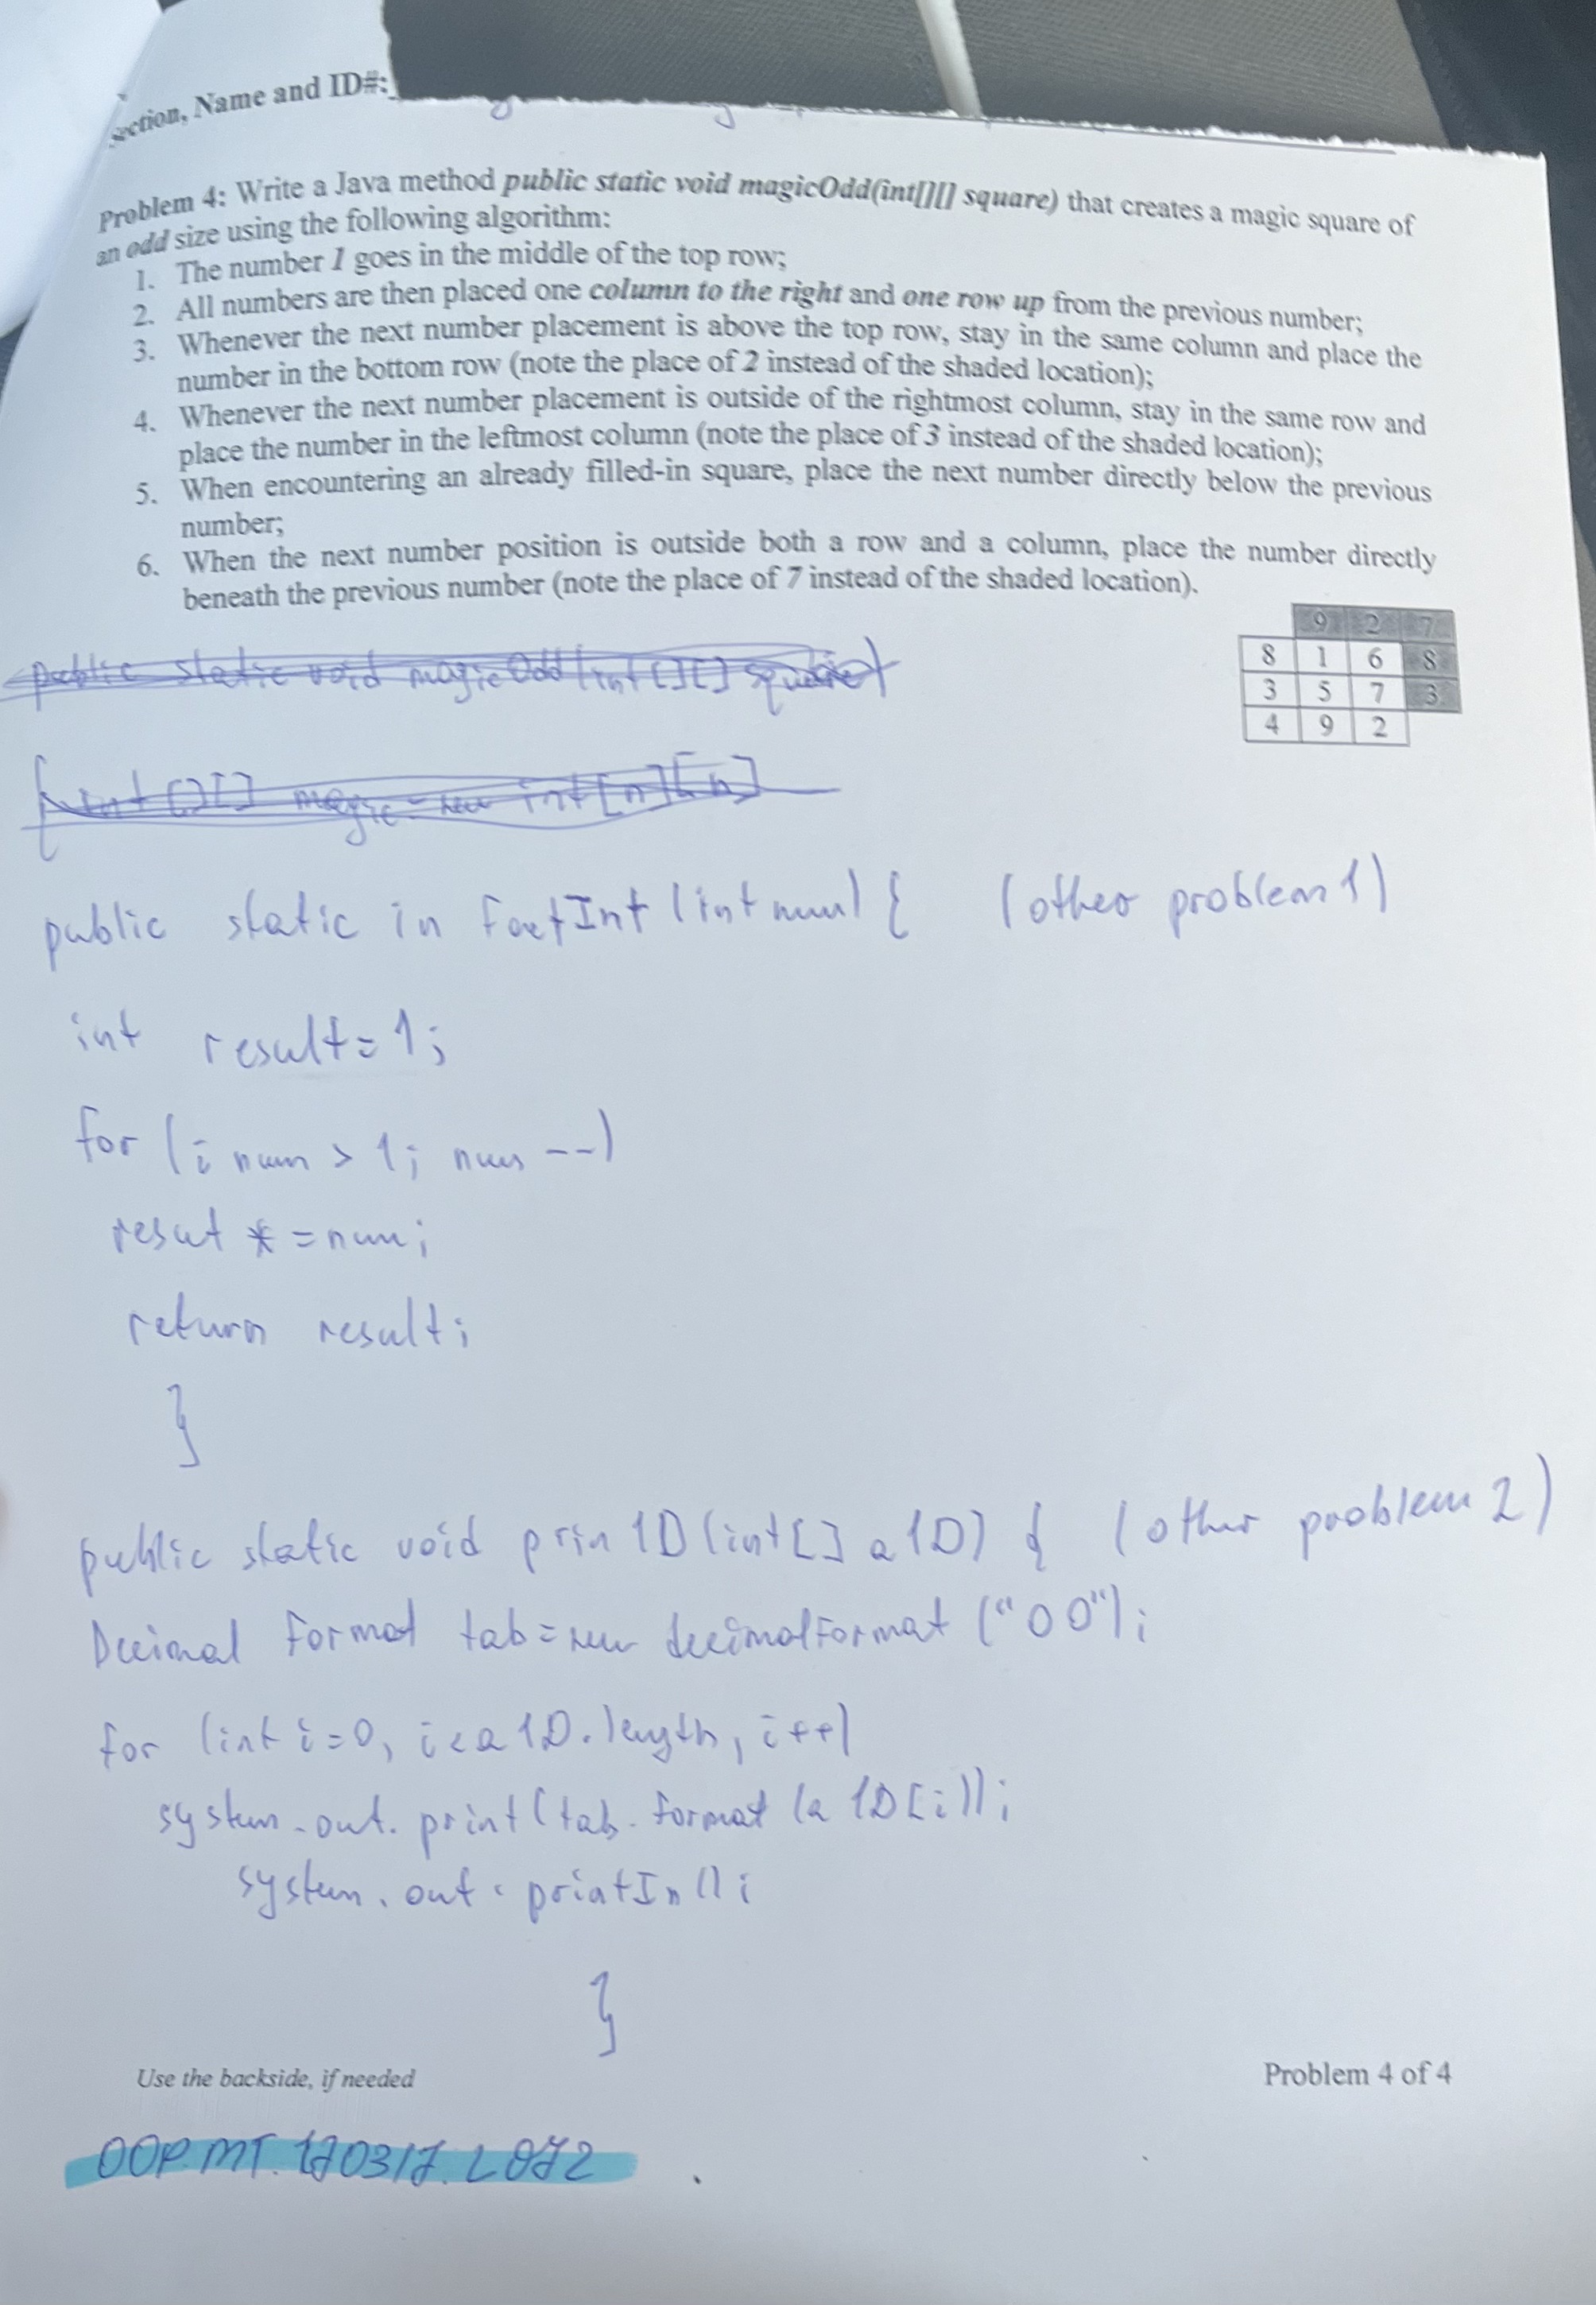 section, Name and ID#:
Problem 4: Write a Java method public static void magicOdd(int[][] square) that creates a magic square of
an odd size using the following algorithm:
1. The number 1 goes in the middle of the top row;
2. All numbers are then placed one column to the right and one row up from the previous number;
3. Whenever the next number placement is above the top row, stay in the same column and place the
number in the bottom row (note the place of 2 instead of the shaded location);
4. Whenever the next number placement is outside of the rightmost column, stay in the same row and
place the number in the leftmost column (note the place of 3 instead of the shaded location);
5. When encountering an already filled-in square, place the next number directly below the previous
number;
6. When the next number position is outside both a row and a column, place the number directly
beneath the previous number (note the place of 7 instead of the shaded location).
9 2 7
8 1 6 8
3 5 7 3
4 9 2
public static void magicOdd(int[][] square)
{ int[][] magic = new int[n][n]
public static in FactInt (int num) { (other problem 1)
int result = 1;
for (; num > 1; num --)
resut * = num;
return result;
}
public static void prin 1D (int[] a1D) { (other problem 2)
Decimal Format tab = new decimalFormat ("00");
for (int i=0, i<a1D.length, i++)
system.out.print(tab.format (a1D[i]));
system.out.printIn();
}
Use the backside, if needed
Problem 4 of 4
OOP.MT.170317.L072